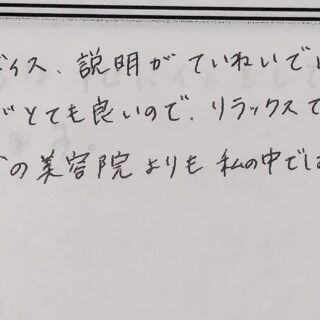 バイス、説明がていねいで
がとても良いので、リラックスで
どの美容院よりも私の中では